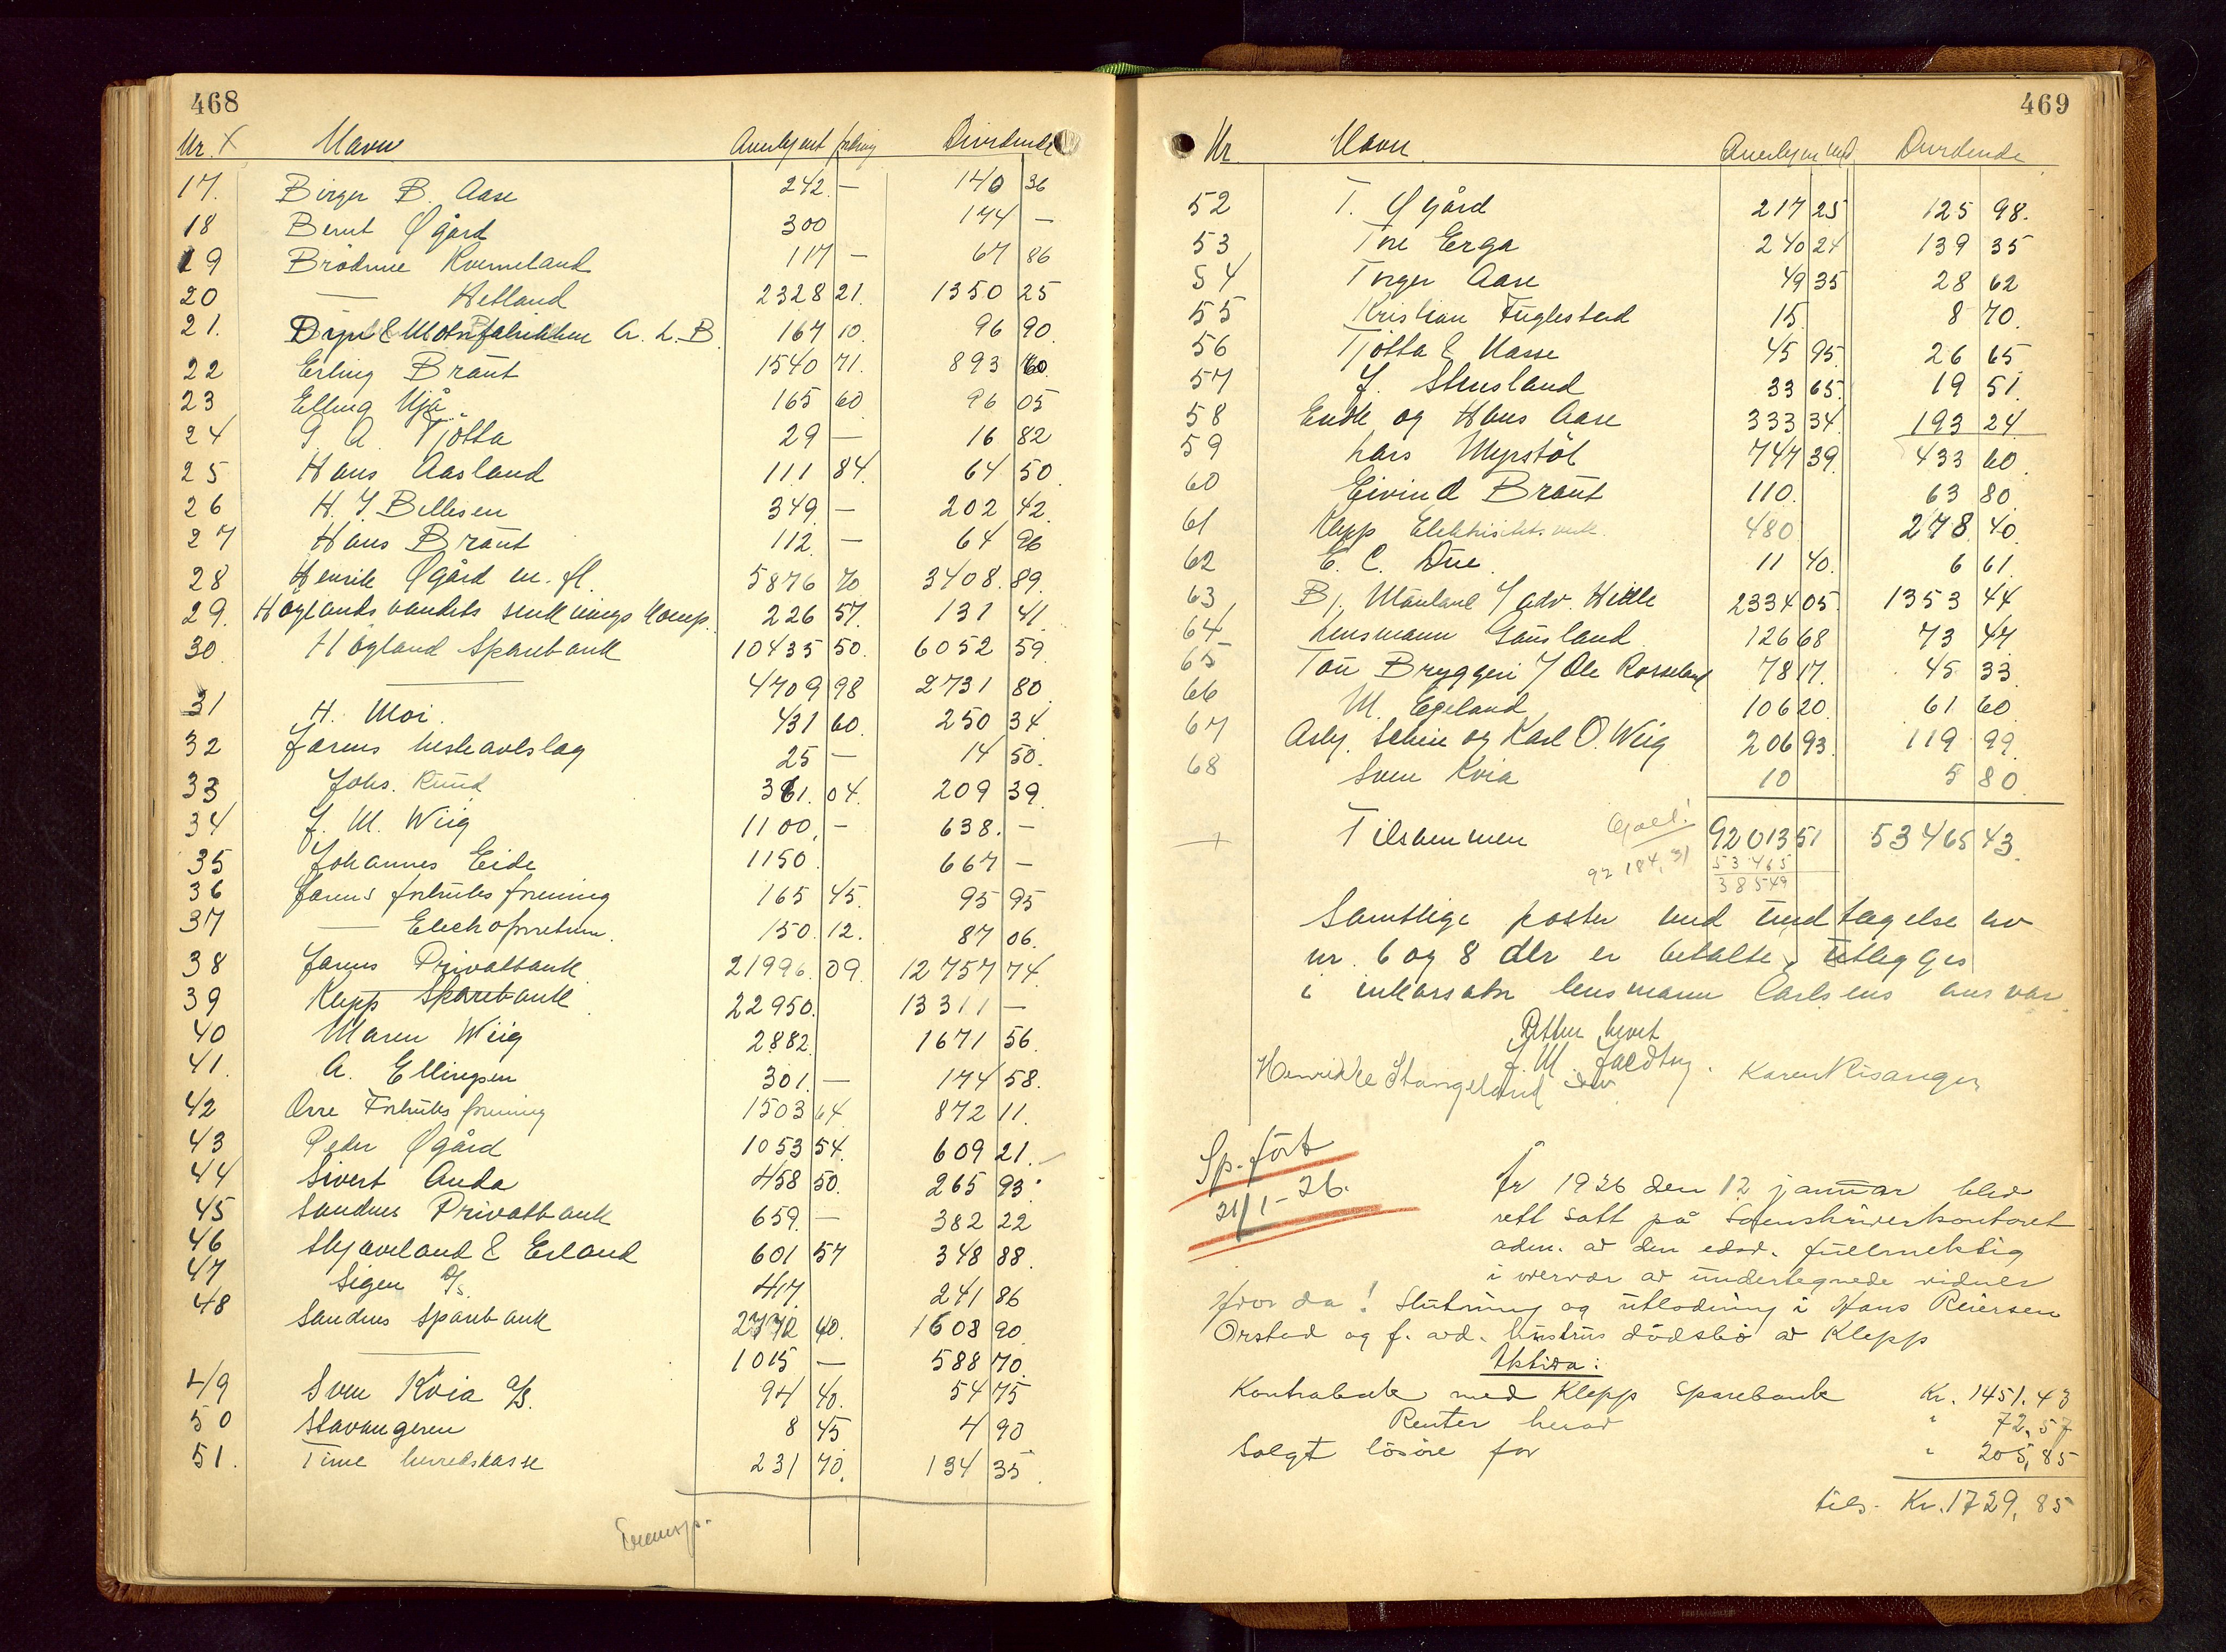 468
Nr. X Navn Anerkjent fordring Dividende
17. Birger B. Aase 242.— 140 36
18 Bernt Øgård 300 174 —
19 Brødrene Kverneland 117 — 67 86
20 — Hetland 2328 21. 1350 25
21. & Motorfabrikken A. L. B. 167 10. 96 90.
22 Erling Braut 1540 71. 893 60.
23 Elling Njå 165 60 96 05
24 A. Tjøtta 29 — 16 82
25 Hans Aasland 111 84. 64 50
26 H. J. Bellesen 349 — 202 42.
27 Hans Braut 112. — 64 96
28 Henrik Øgård m. fl. 5876 70 3408. 89.
29. Høglandsvandets senkningskomp. 226 57. 131 41
30. Høgland Sparebank 10435 50. 6052 59
— 4709 98 2731 80
31 H. Moi. 431 60. 250 34
32 Jærens hesteavlslag 25 — 14 50.
33 Johs. Rund 361. 04. 209 39.
34 J. M. Wiig 1100. — 638. —
35 Johannes Eide 1150. 667 —
36 Jærens forbruksforening 165 45. 95 95
37 — Electroforretn. 150. 12. 87 06.
38 Jærens Privatbank 21996. 09. 12757 74.
39 Klepp Sparebank 22950. 13311 —
40 Maren Wiig 2882. 1671 56.
41. A. Ellingsen 301. — 174 58.
42 Orre Forbruksforening 1503 64. 872 11.
43 Peder Øgård 1053 54. 609 21.
44 Sivert Anda 458 50. 265 93.
45 Sandnes Privatbank 659. — 382 22
46 Skjæveland & Erland 601 57 348 88.
47 Sigen A/S. 417. 241 86
48 Sandnes Sparebank 2772 40. 1608 90
— 1015 — 588 70.
49 Sven Kvia A/S. 94 40. 54 75
50 Stavangeren 8 45 4 90
51. Time herredskasse 231 70. 134 35.
Transp.
469
Nr. Navn Anerkjent Dividende
52 T. Øgård 217 25 125 98.
53 Tore Erga 240 24 139 35
54 Torger Aase 49 35 28 62
55 Kristian Fuglestad 15 8 70.
56 Tjøtta & Nasse 45 95. 26 65
57 J. Stensland 33 65. 19 51.
58 Endre og Hans Aase 333 34. 193 24
59 Lars Myrstøl 747 39. 433 60.
60 Eivind Braut 110. 63 80
61 Klepp Elektrisitetsverk. 480 278. 40.
62 E. C. Due. 11 40. 6 61.
63 Bj. Mauland / adv. Hille 2334 05. 1353 44
64 Lensmann Gausland 126 68 73 47
65 Tou Bryggeri / Ole Rosseland 78 17. 45 33.
66 M. Egeland 106 20. 61 60
67 Asbj. Selheim og Karl O. Wiig 206 93. 119 99.
68 Sven Kvia 10 5 80.
Tilsammen Galt! 92013 51 53465 43.
92 184,31 53465
38549
Samtlige poster med undtagelse av
nr. 6 og 8 der er betalte, utlegges
i inkassator lensmann Carlsens ansvar
Retten hevet
J. M. Jaedtny.
Henrikke Stangeland Karen Risanger
Sp. ført
21/1-26.
År 1926 den 12 januar blev
rett satt på Sorenskriverkontoret
adm. av den edsv. fullmektig
i overvær av undertegnede vidner
Hvor da! Slutning og utlodning i Hans Reiersen
Orstad og f. avd. hustrus dødsbo av Klepp
Aktiva:
Kontrabok med Klepp Sparebank Kr. 1451.43
Renter herav " 72,57
Solgt løsøre for " 205,85
tils. Kr. 1729,85